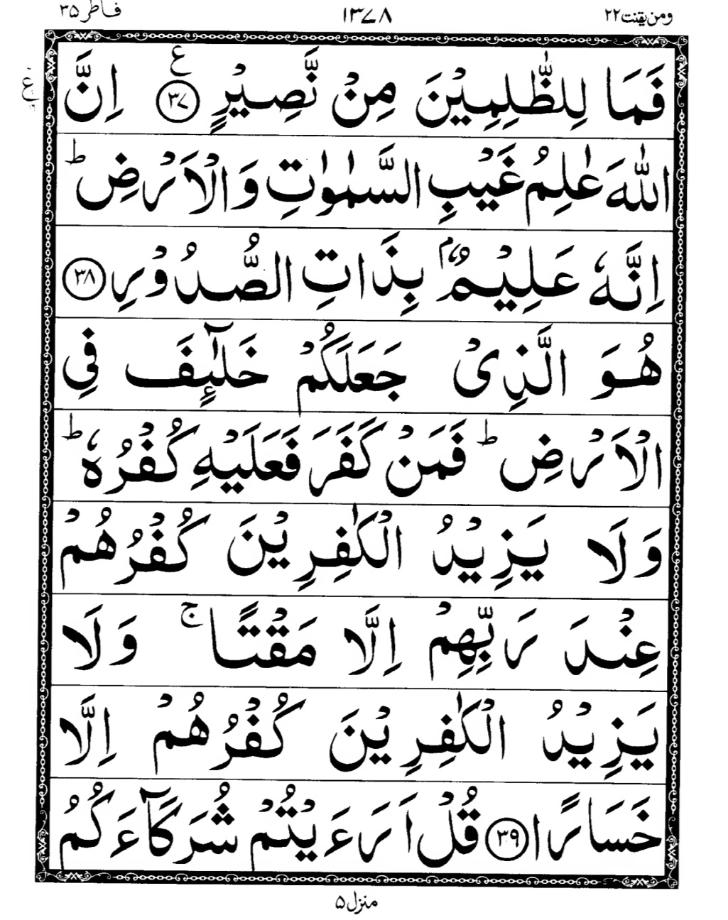 ومن یقنت ۲۲ ۱۳۷۸ فاطر ۳۵
فَمَا لِلظّٰلِمِیْنَ مِنْ نَّصِیْرٍ ﴿۳۷﴾ ع اِنَّ
اللّٰهَ عٰلِمُ غَیْبِ السَّمٰوٰتِ وَالْاَرْضِ ؕ
اِنَّهٗ عَلِیْمٌۢ بِذَاتِ الصُّدُوْرِ ﴿۳۸﴾
هُوَ الَّذِیْ جَعَلَكُمْ خَلٰٓئِفَ فِی
الْاَرْضِ ؕ فَمَنْ كَفَرَ فَعَلَیْهِ كُفْرُهٗ ؕ
وَلَا یَزِیْدُ الْكٰفِرِیْنَ كُفْرُهُمْ
عِنْدَ رَبِّهِمْ اِلَّا مَقْتًا ۚ وَلَا
یَزِیْدُ الْكٰفِرِیْنَ كُفْرُهُمْ اِلَّا
خَسَارًا ﴿۳۹﴾ قُلْ اَرَءَیْتُمْ شُرَكَآءَكُمُ
منزل ۵